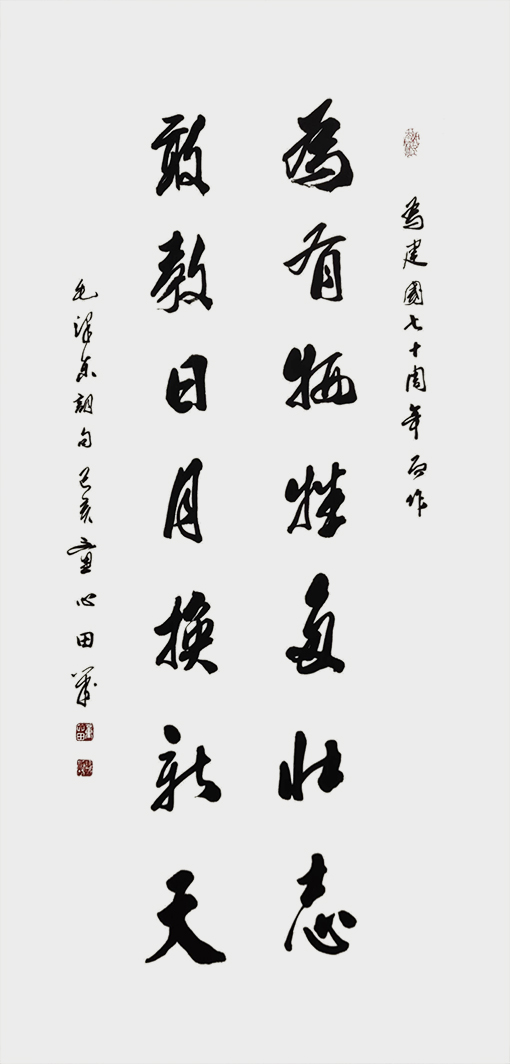 為建國七十周年而作
為有牺牲多壮志
敢教日月换新天
毛泽东詞句己亥童心田筆